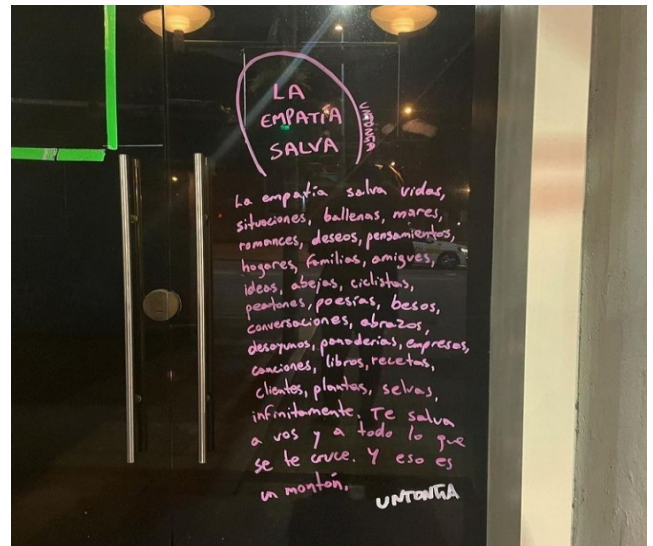 LA
EMPATÍA
SALVA
UNTONGA
La empatía salva vidas,
situaciones, ballenas, mares,
romances, deseos, pensamientos,
hogares, familias, amigues,
ideas, abejas, ciclistas,
peatones, poesías, besos,
conversaciones, abrazos,
desayunos, panaderías, empresas,
canciones, libros, recetas,
clientes, plantas, selvas,
infinitamente. Te salva
a vos y a todo lo que
se te cruce. Y eso es
un montón.
UNTONGA